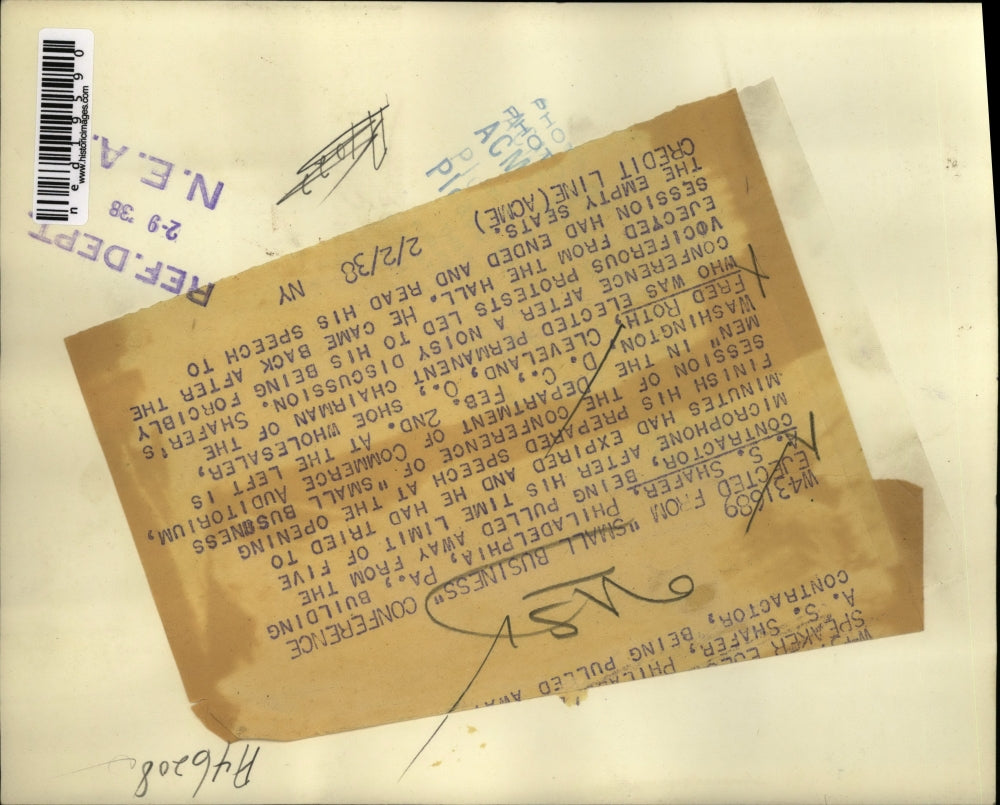 SPEAKER
A. S. SHAFER, PHILA
CONTRACTOR, BEING PULLED AWA
W431689
EJECTED FROM "SMALL BUSINESS" CONFERENCE
A. S. SHAFER, PHILADELPHIA, PA., BUILDING
CONTRACTOR, BEING PULLED AWAY FROM THE
MICROPHONE AFTER HIS TIME LIMIT OF FIVE
MINUTES HAD EXPIRED AND HE HAD TRIED TO
FINISH HIS PREPARED SPEECH AT THE OPENING
SESSION OF THE CONFERENCE OF "SMALL BUSINESS
MEN" IN THE DEPARTMENT OF COMMERCE AUDITORIUM,
WASHINGTON, D. C., FEB. 2ND. AT LEFT IS
FRED ROTH, CLEVELAND, O. SHOE WHOLESALER,
WHO WAS ELECTED PERMANENT CHAIRMAN OF THE
CONFERENCE AFTER A NOISY DISCUSSION. SHAFER'S
VOCIFEROUS PROTESTS LED TO HIS BEING FORCIBLY
EJECTED FROM THE HALL. HE CAME BACK AFTER THE
SESSION HAD ENDED AND READ HIS SPEECH TO
THE EMPTY SEATS.
CREDIT LINE (ACME) 2/2/38 NY
REF. DEPT.
2-9 '38
N.E.A.
ACM
www.historicimages.com
ned19590